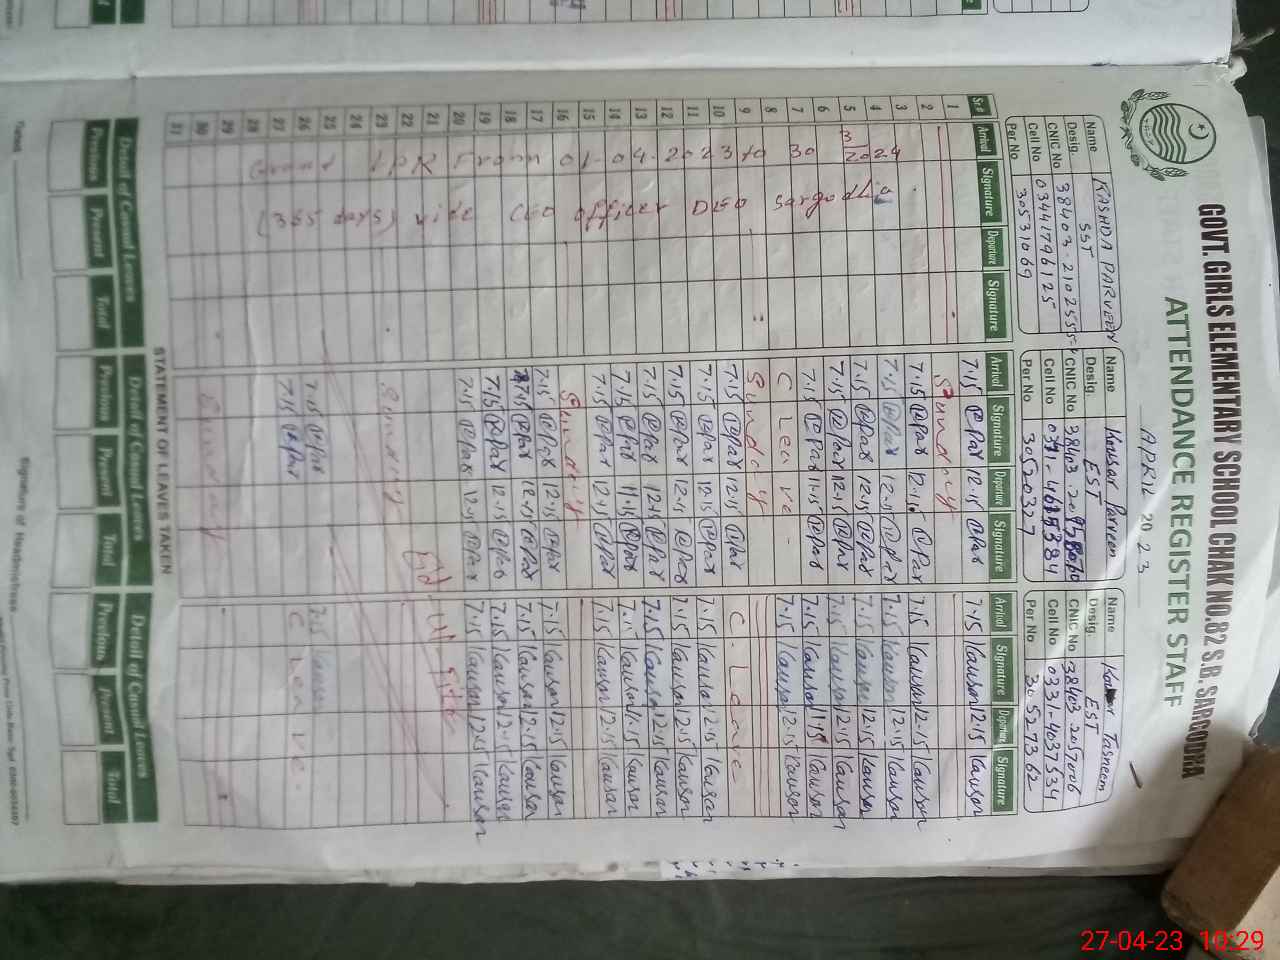 GOVT. GIRLS ELEMENTARY SCHOOL CHAK NO.82 S.B. SARGODHA
ATTENDANCE REGISTER STAFF
APRIL 2023
Name RASHDA PARVEEN
Desig. SST
CNIC No 38403-2102555-
Cell No 03441796125
Per No 30531069
Name Kousar Parveen
Desig. EST
CNIC No 38403
Cell No
Per No 30520327
Name Tasneem
Desig. EST
CNIC No 38403 2057006
Cell No 0331-4037534
Per No 30527362
Sr# Arrival Signature Departure Signature Arrival Signature Departure Signature Arrival Signature Departure Signature
1 7.15 @Par 12.15 @Par 7.15 Kausar 12.15 Kausar
2 Sunday
3 7.15 @Par 12.15 @Par 7.15 Kausar 12.15 Kausar
4 7.15 @Par 12.15 @Par 7.15 Kausar 12.15 Kausar
5 7.15 @Par 12.15 @Par 7.15 Kausar 12.15 Kausar
6 7.15 @Par 12.15 @Par 7.15 Kausar 12.15 Kausar
7 7.15 @Par 11.15 @Par 7.15 Kausar 11.15 Kausar
8 C Leave 7.15 Kausar 12.15 Kausar
9 Sunday
10 7.15 @Par 12.15 @Par C. Leave
11 7.15 @Par 12.15 @Par 7.15 Kausar 12.15 Kausar
12 7.15 @Par 12.15 @Par 7.15 Kausar 12.15 Kausar
13 7.15 @Par 12.15 @Par 7.15 Kausar 12.15 Kausar
14 7.15 @Par 11.15 @Par 7.15 Kausar 11.15 Kausar
15 7.15 @Par 12.15 @Par 7.15 Kausar 12.15 Kausar
16 Sunday
17 7.15 @Par 12.15 @Par 7.15 Kausar 12.15 Kausar
18 7.15 @Par 12.15 @Par 7.15 Kausar 12.15 Kausar
19 7.15 @Par 12.15 @Par 7.15 Kausar 12.15 Kausar
20 7.15 @Par 12.15 @Par 7.15 Kausar 12.15 Kausar
21
22 Eid-ul-Fitr
23 Sunday
24
25
26 7.15 @Par 7.15 Kausar
27 7.15 @Par C Leave
28
29
30 Sunday
31
Grant LPR From 01-04-2023 to 30 3/2024
(365 days) vide CEO officer DEO Sargodha
STATEMENT OF LEAVES TAKEN
Detail of Casual Leaves Detail of Casual Leaves Detail of Casual Leaves
Previous Present Total Previous Present Total Previous Present Total
Signature of Headmistress
27-04-23 10:29